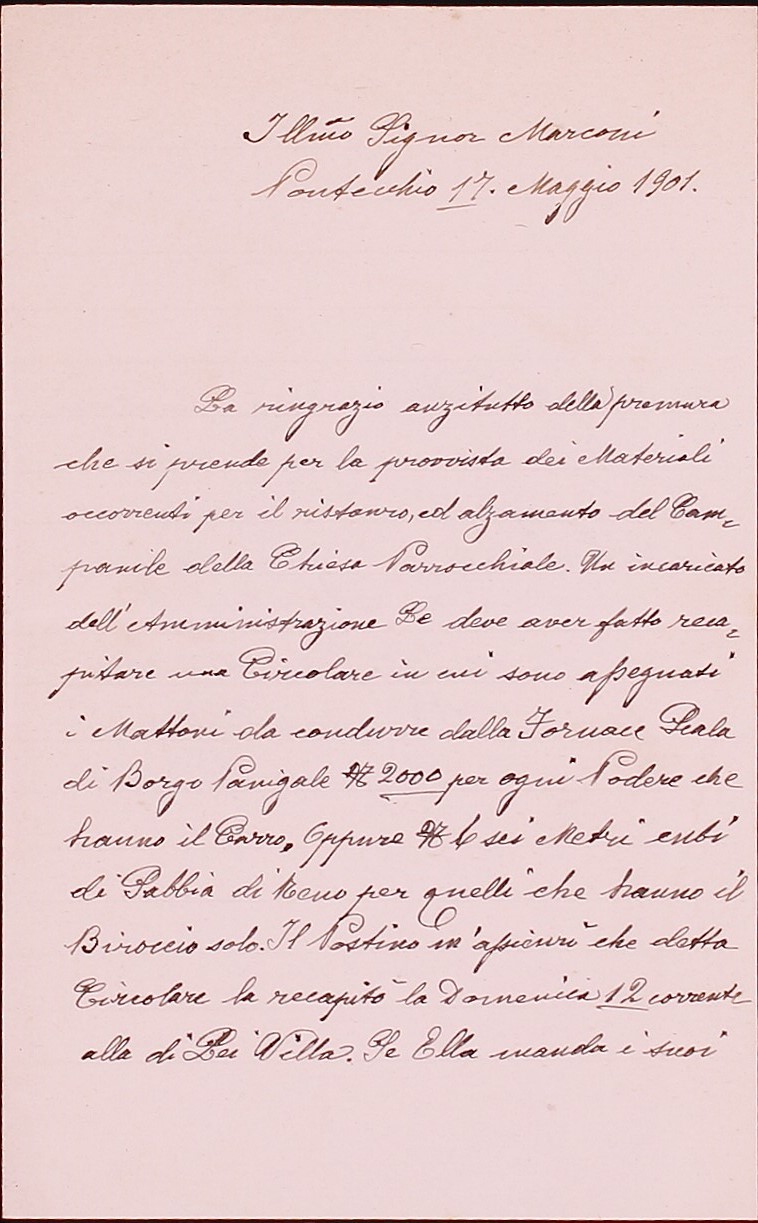 Illmo Signor Marconi
Pontecchio 17. Maggio 1901.
La ringrazio anzitutto della premura
che si prende per la provvista dei Materiali
occorrenti per il ristauro, ed alzamento del Cam=
panile della Chiesa Parrocchiale. Un incaricato
dell'Amministrazione Le deve aver fatto reca=
pitare una Circolare in cui sono assegnati
i Mattoni da condurre dalla Fornace Scala
di Borgo Panigale N 2000 per ogni Podere che
hanno il Carro, Oppure N 6 sei Metri cubi
di Sabbia di Reno per quelli che hanno il
Biroccio solo. Il Postino m'assicurò che detta
Circolare la recapitò la Domenica 12 corrente
alla di Lei Villa. Se Ella manda i suoi